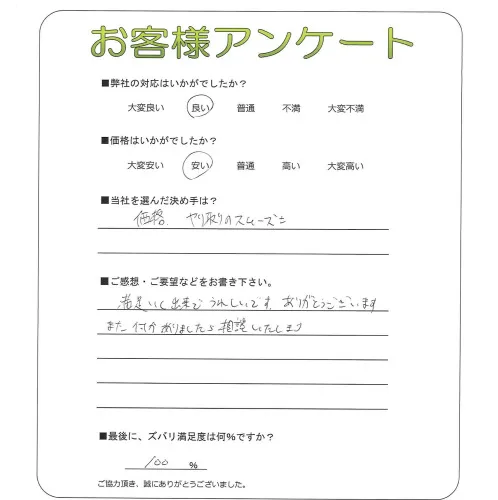 お客様アンケート
■弊社の対応はいかがでしたか？
大変良い 良い 普通 不満 大変不満
■価格はいかがでしたか？
大変安い 安い 普通 高い 大変高い
■当社を選んだ決め手は？
価格 やり取りのスムーズさ
■ご感想・ご要望などをお書き下さい。
満足いく出来でうれしいです。ありがとうございます
また何かありましたら相談いたします
■最後に、ズバリ満足度は何%ですか？
100 %
ご協力頂き、誠にありがとうございました。